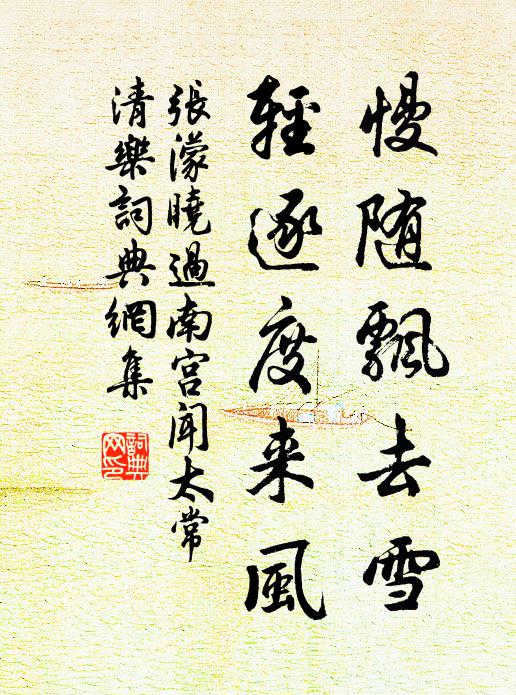 慢随飄去雪
輕逐度来風
張濛曉過南宮聞太常
清樂詞典網集
詞典
网印